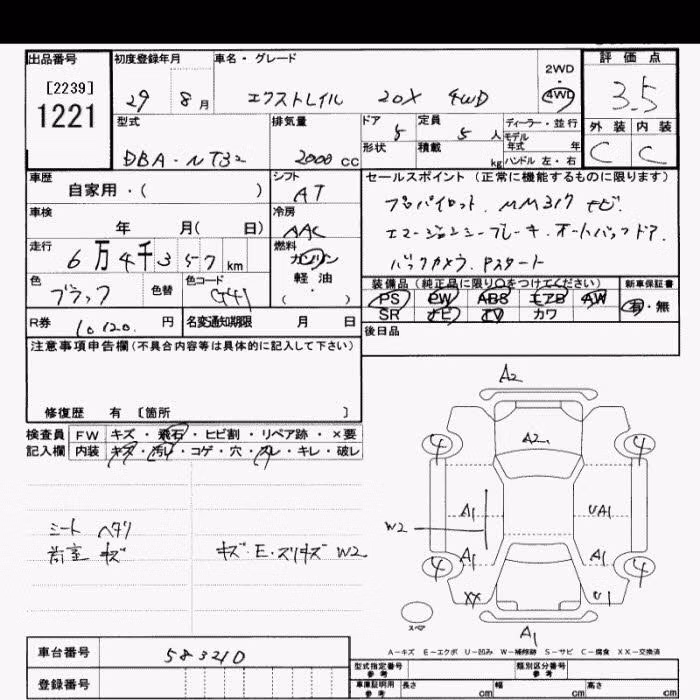 出品番号 初度登録年月 車名・グレード 2WD・4WD 評価点
[2239]
1221
29 8月 エクストレイル 20X 4WD 3.5
型式 排気量 ドア 定員 ディーラー・並行 外装 内装
DBA・NT32 2000cc 5 5人 モデル年式 年 C C
形状 積載 kg ハンドル 左・右
車歴 シフト セールスポイント (正常に機能するものに限ります)
自家用・( ) AT プロパイロット. MM317 ナビ.
車検 冷房 エマージェンシーブレーキ. オートバックドア.
年 月( 日) AAC バックカメラ. Pスタート
走行 燃料
6万4千357km ガソリン・軽油・( )
色 色替 色コード 装備品 (純正品に限り○をつけてください) 新車保証書
ブラック G41 PS PW ABS エアB AW 有・無
SR ナビ TV カワ
R券 10,120.円 名変通知期限 月 日 後日品
注意事項申告欄 (不具合内容等は具体的に記入して下さい)
修復歴 有 〔箇所 〕
検査員記入欄 FW キズ・飛石・ヒビ割・リペア跡・×要
内装 キズ・汚れ・コゲ・穴・スレ・キレ・破レ
シート ヘタリ
荷室 キズ キズ・E・スリキズ W2
A2
4 A2 4
A1 UA1
W2
A1 A1
4 4
XX U1
スペア
A1
A-キズ E-エクボ U-凹み W-補修跡 S-サビ C-腐食 XX-交換済
車台番号 583210
登録番号
型式指定番号 参考 類別区分番号 参考
車庫証明用 参考 長さ cm 幅 cm 高さ cm